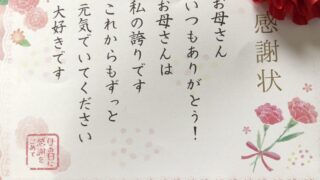 感謝状
お母さん
いつもありがとう!
お母さんは
私の誇りです
これからもずっと
元気でいてください
大好きです
母の日に
感謝を
こめて